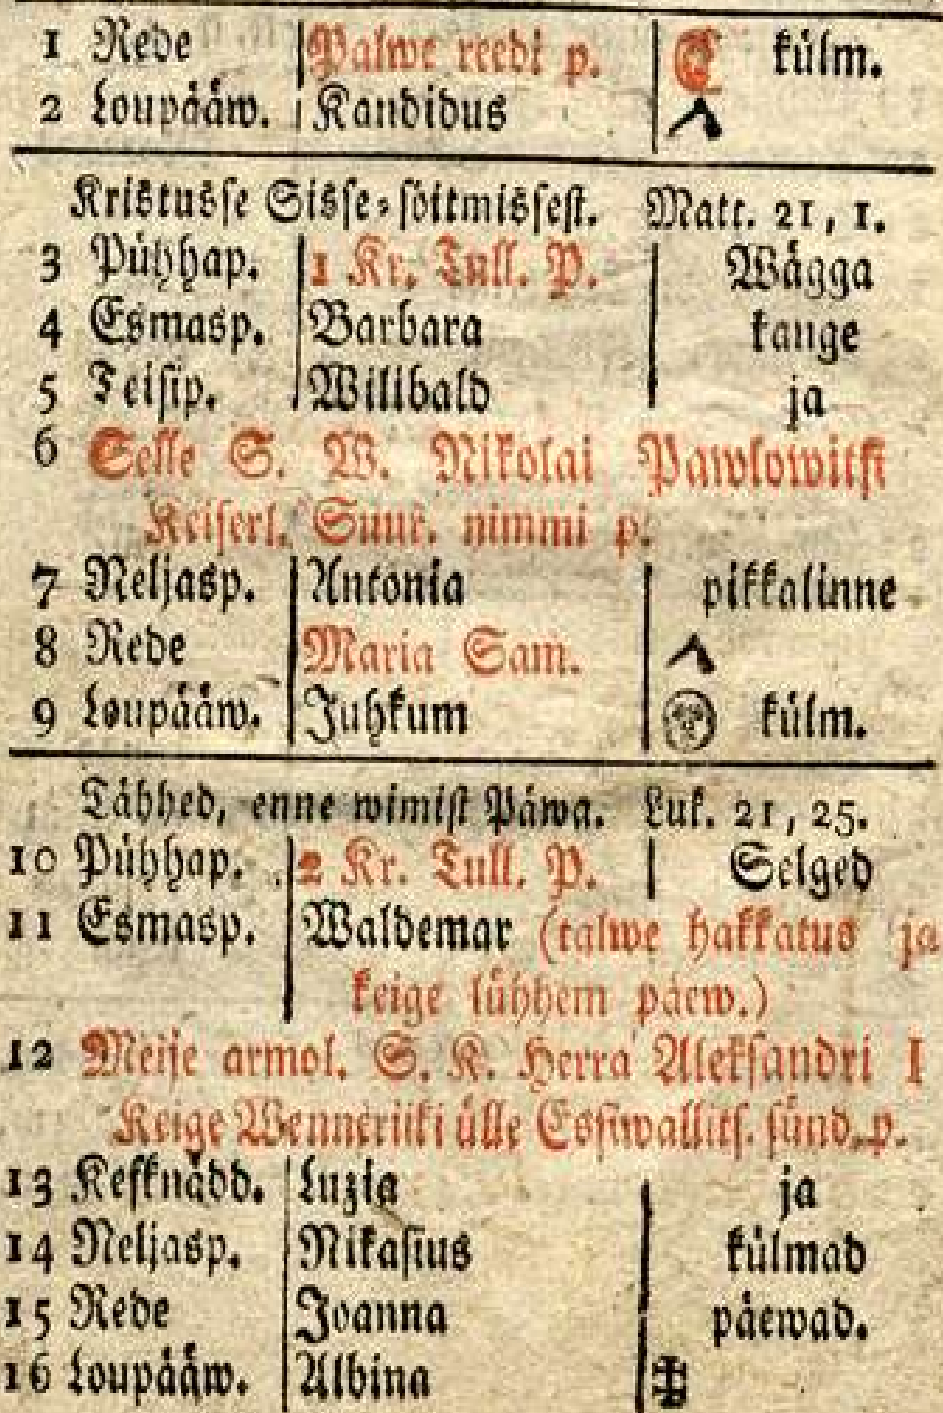 1 Rede Palwe reedi p. külm.
2 Loupääw. Kandidus
Kristusse Sisse-sõitmissest. Matt. 21, 1.
3 Pühhap. 1 Kr. Tull. P. Wägga
4 Esmasp. Barbara kange
5 Teisip. Willibald ja
6 Selle S. W. Nikolai Pawlowitsi
Keiserl. Suue. nimmi p.
7 Neljasp. Antonia pikkalinne
8 Rede Maria Sam.
9 Loupääw. Juhkum külm.
Tähhed, enne wimist Päwa. Luk. 21, 25.
10 Pühhap. 2 Kr. Tull. P. Selged
11 Esmasp. Waldemar (talwe hakkatus ja
keige lühhem päew.)
12 Meije armol. S. K. Herra Aleksandri I
Keige Wenneriiki ülle Esfiwallits. sünd. p.
13 Kesknädd. Luzia ja
14 Neljasp. Nikasius külmad
15 Rede Joanna päewad.
16 Loupääw. Albina